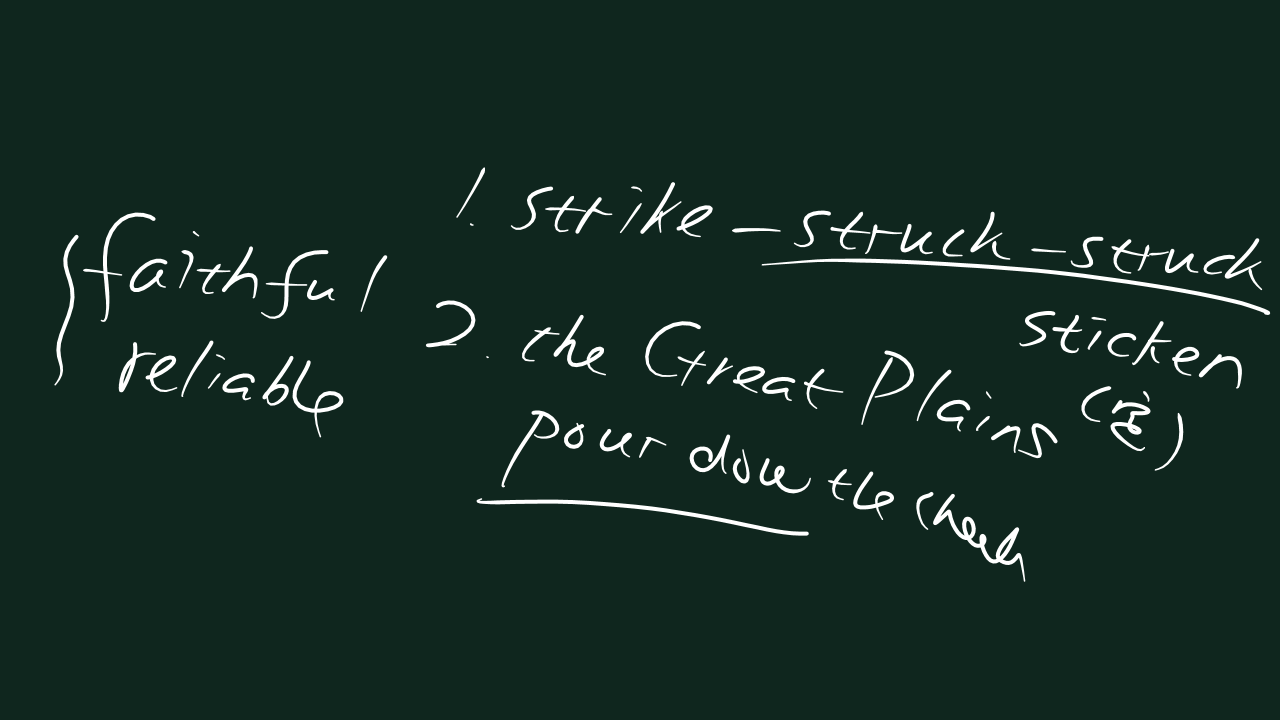 faithful
reliable
1. strike - struck - struck
sticken
2. the Great Plains
pour down the cheeks